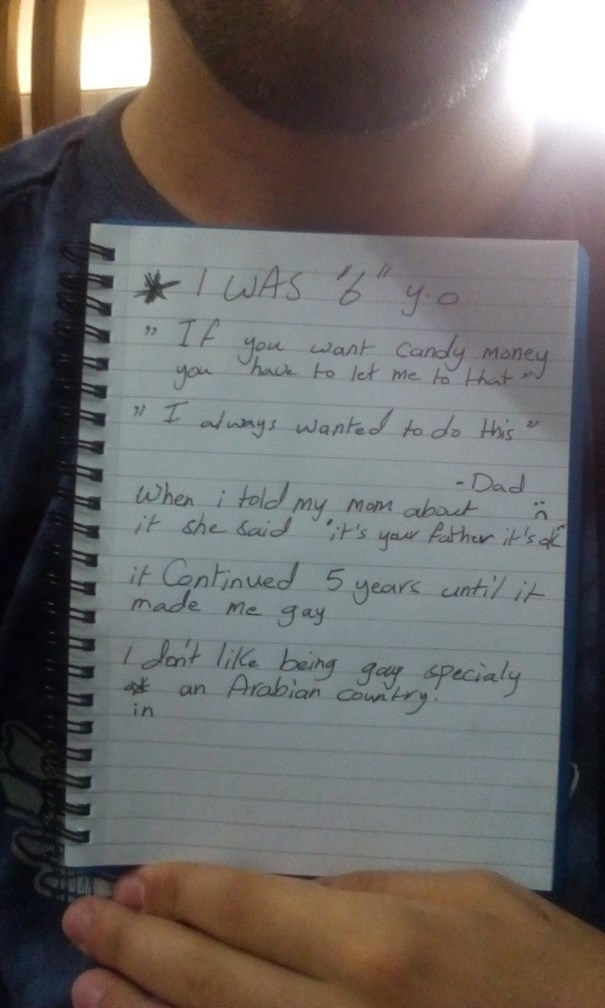 * I WAS "6" y.o
" If you want candy money
you have to let me to that "
" I always wanted to do this "
- Dad
When i told my mom about :(
it she said "it's your father it's ok"
it Continued 5 years until it
made me gay
I don't like being gay specialy
in an Arabian country.